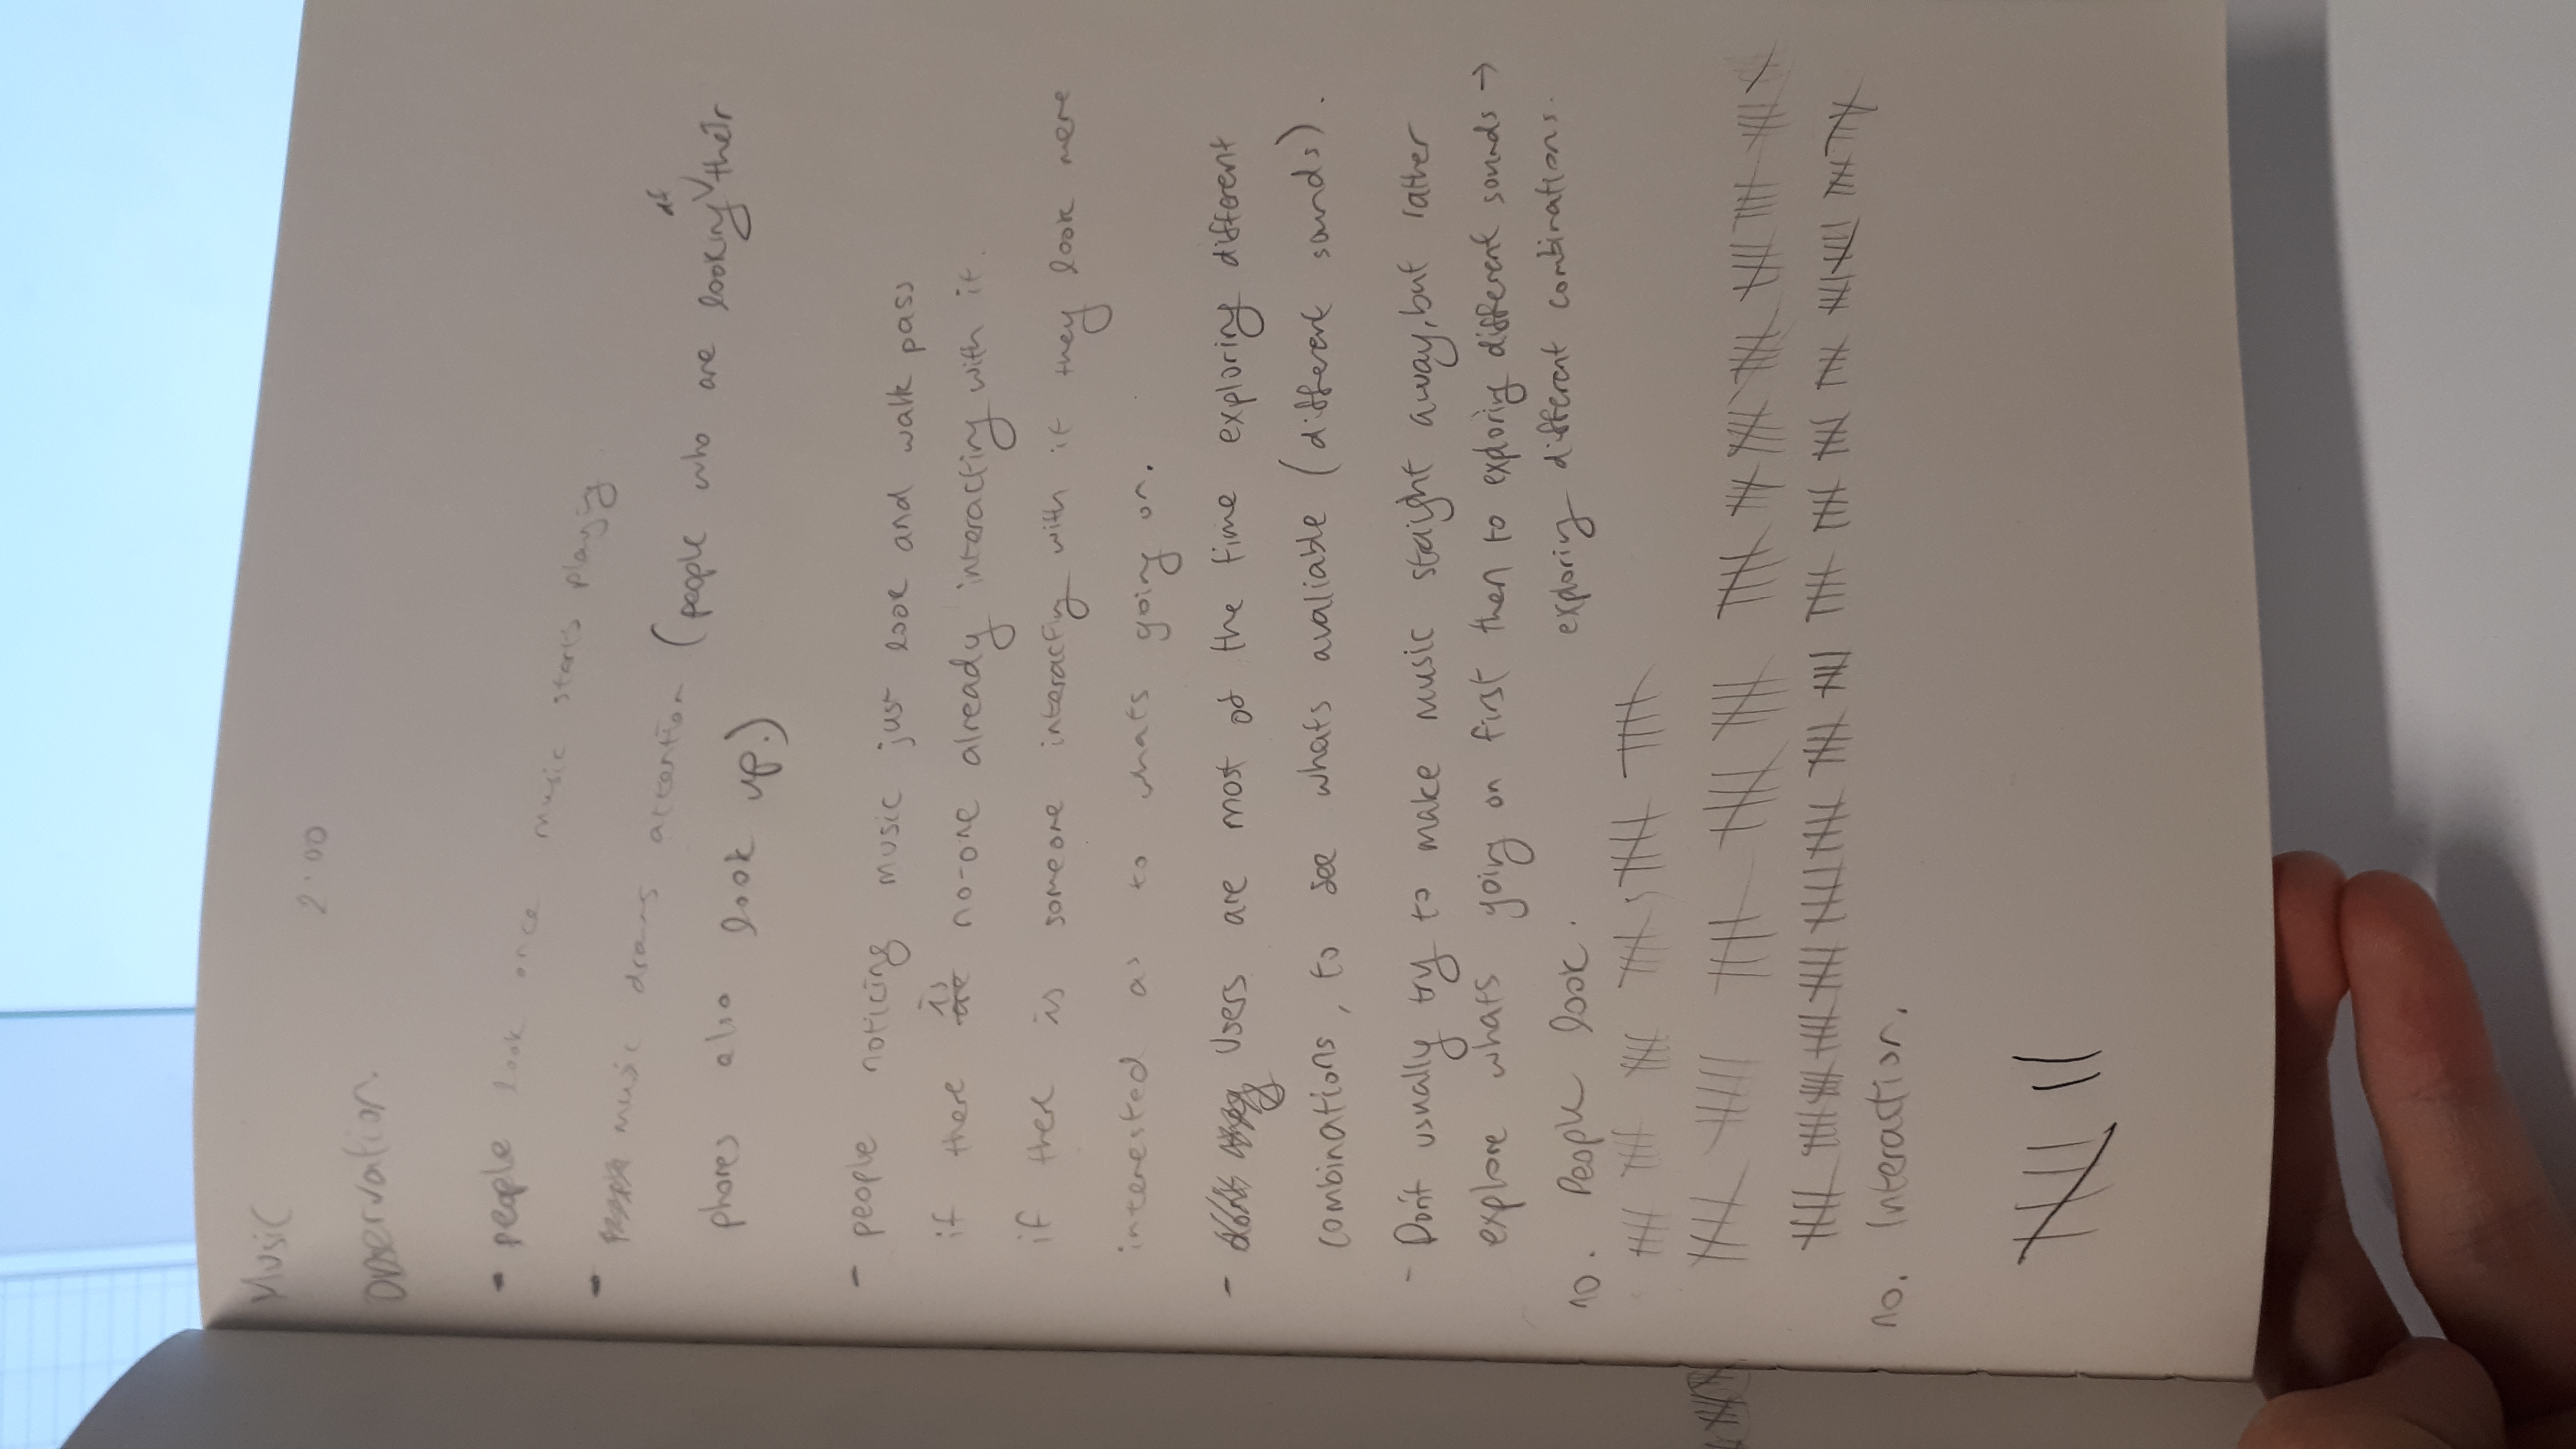 Music
2:00
Observation.
- people look once music starts playing
- music draws attention (people who are looking at their
phones also look up.)
- people noticing music just look and walk pass
if there is no-one already interacting with it.
if there is someone interacting with it they look more
interested as to whats going on.
- Users are most of the time exploring different
combinations, to see whats avaliable (different sounds).
- Don't usually try to make music staight away, but rather
explore whats going on first then to exploring different sounds →
exploring different combinations.
no. People look.
no. Interaction.